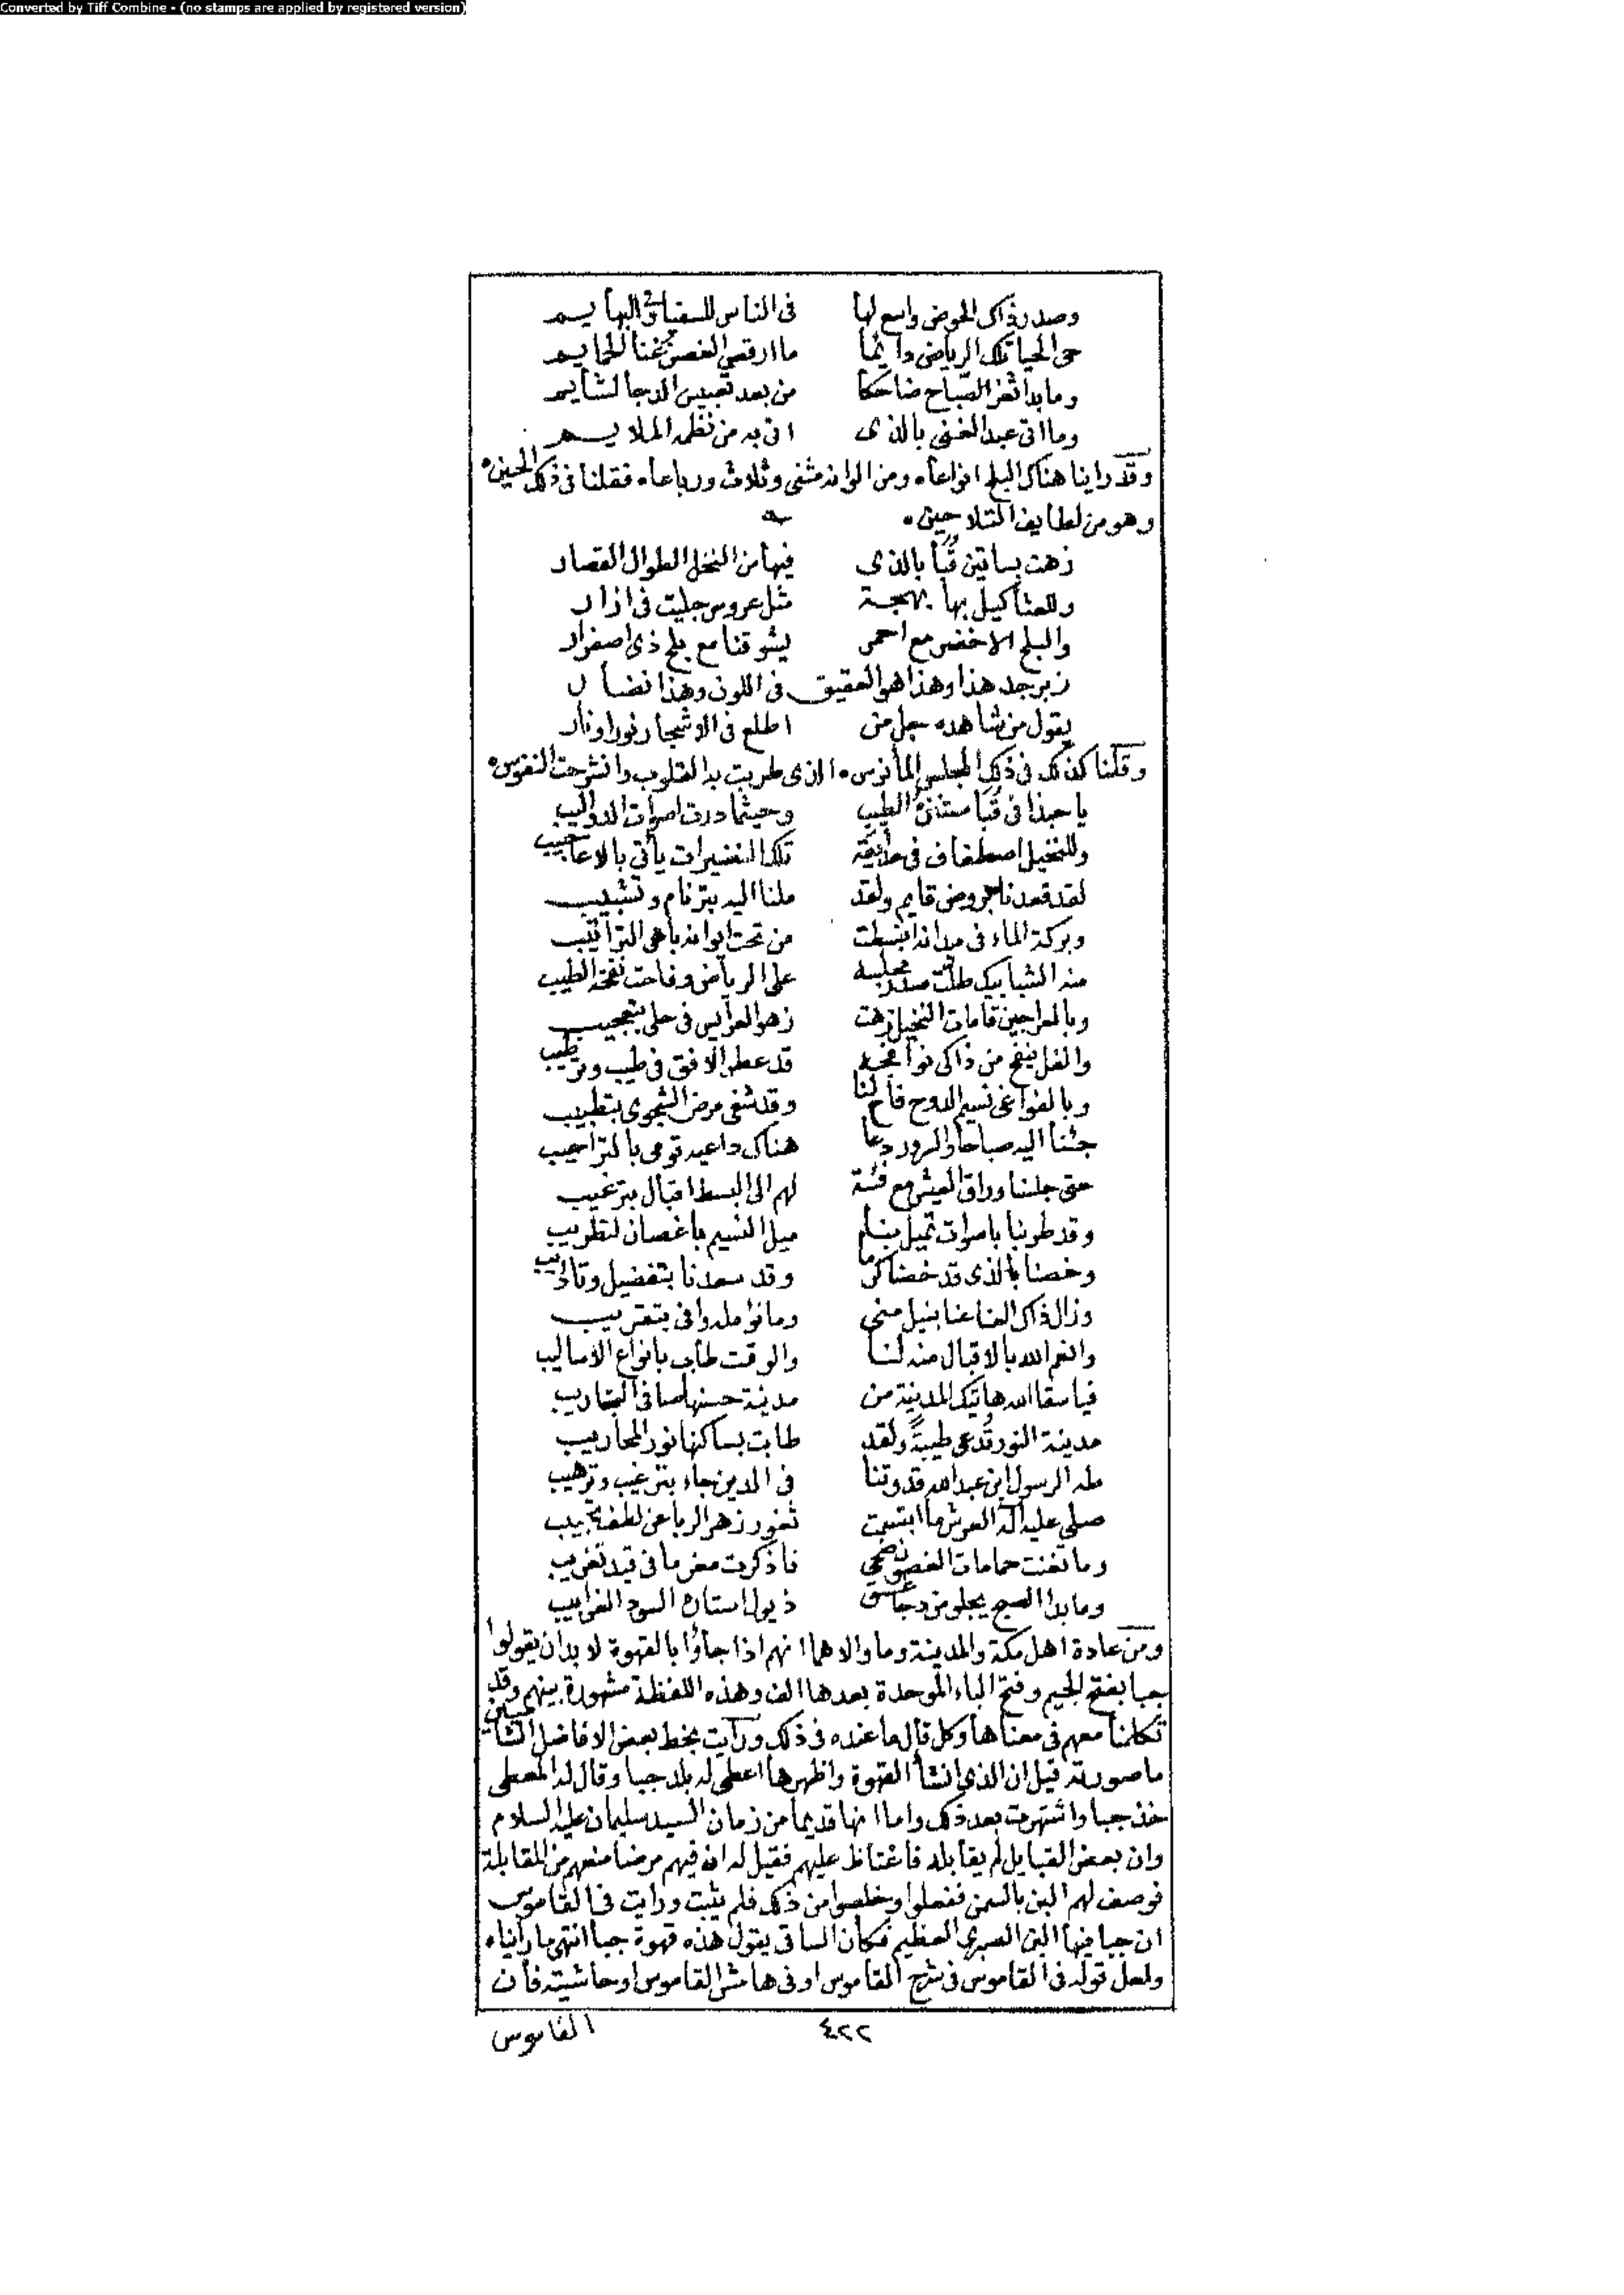 Converted by Tiff Combine - (no stamps are applied by registered version)
وصدر ذاك الحوض واسع لها في الناس للسقيا والبهايم
حي الحيا تلك الرياض دايما ما ارقص الغصن غنا الحمايم
وما بدا ثغر الصباح ضاحكا من بعد تعبيس الدجا لشايم
وما اتى عبد الغني بالذى اتى به من نظمه الملايم
وقد راينا هناك البلح انواعا، ومن الوانه مثنى وثلاث ورباعا، فقلنا في ذلك الحين،
وهو من لطايف التلاحين،
زهت بساتين قبا بالذى فيها من النخل الطوال القصار
وللعثاكيل بها بهجة مثل عروس جليت في ازار
والبلح الاخضر مع احمر يشوقنا مع بلح ذى اصفرار
زبرجد هذا وهذا هو العقيق في اللون وهذا نضار
يقول من شاهده جل من اطلع في الاشجار نورا ونار
وقلنا كذلك في ذلك المجلس المأنوس، الذى طربت به القلوب وانشرحت النفوس،
يا حبذا في قبا مستنزه الطيب وحيثما درت اصوات الدواليب
وللنخيل اصطفاف في حدايقه تلك النضيرات يأتي بالاعاجيب
لقد قعدنا بروض قايم ولقد ملنا اليه بترنام وتشبيب
وبركة الماء في ميدانه انبسطت من تحت ايوانه باهى التراتيب
منه الشبابيك طلت صدر مجلسه على الرياض وفاحت نفحة الطيب
وبالعراجين قامات النخيل زهت زهو العرايس في حلى بتعجيب
والفل ينفح من ذاكى نوافجه قد عطر الافق في طيب وترطيب
وبالفواغى نسيم الدوح فاح لنا وقد شفى مرض الشجوى بتطبيب
جئنا اليه صباحا والسرور دعا هناك داعيه قومى بالتراحيب
حتى جلسنا وراق العيش مع فئة لهم الى البسط اقبال بترغيب
وقد طربنا باصوات تميل بنا ميل النسيم باغصان لتطريب
وخصنا بالذى قد خصنا كرما وقد سعدنا بتفضيل وتاديب
وزال ذاك العنا عنا بنيل منى وما نؤمله وافى بتقريب
وانعم الله بالاقبال منه لنا والوقت طاب بانواع الاساليب
فيا سقا الله هاتيك المدينة من مدينة حسنها صافى المشاريب
مدينة النور تدعى طيبة ولقد طابت بساكنها نور المحاريب
طه الرسول ابن عبد الله قدوتنا في الدين جاء بترغيب وترهيب
صلى عليه اله العرش ما ابتسمت ثغور زهر الربا عن لطف تحبيب
وما تغنت حمامات الغصون ضحى فاذكرت مغرما في قيد تغريب
وما بدا الصبح يجلو من دجا غسق ذيول استاره السود الغرابيب
ومن عادة اهل مكة والمدينة وما والاهما انهم اذا جاؤا بالقهوة لا بد ان يقولوا
جبا بفتح الجيم وفتح الباء الموحدة بعدها الف وهذه اللفظة مشهورة بينهم وقد
تكلمنا معهم في معناها وكل قال ما عنده في ذلك ورأيت بخط بعض الافاضل الشاميين
ما صورته قيل ان الذى انشأ القهوة واظهرها اعطى له بلد جبا وقال له المعطى
خذ جبا واشتهرت بعد ذلك واما انها قديما من زمان السيد سليمان عليه السلام
وان بعض القبايل لم يقابله فاغتاظ عليهم فقيل له ان فيهم مرضا منعهم من المقابلة
فوصف لهم البن بالسمن ففعلوا وخلصوا من ذلك فلم يثبت ورايت في القاموس
ان جبا فيها البن الصبرى العظيم فكأن الساقى يقول هذه قهوة جبا انتهى ما رأيناه
ولعل قوله في القاموس في شرح القاموس او في هامش القاموس او حاشيته فان
القاموس
٤٢٢